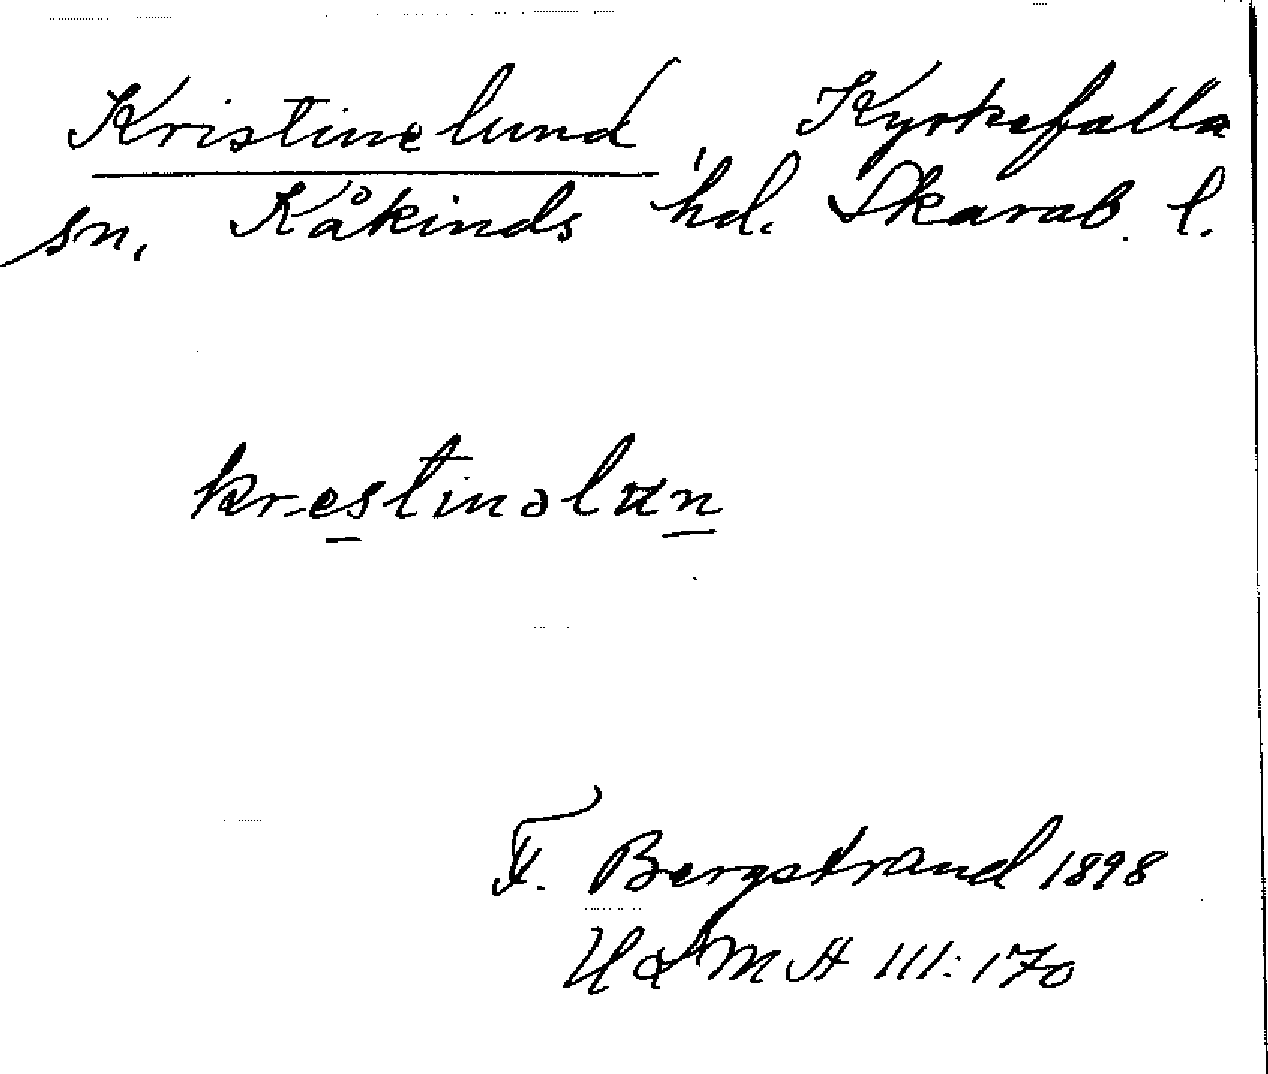 Kristinelund, Kyrkefalla
sn, Kåkinds hd. Skarab. l.
krestinəlun
F. Bergstrand 1898
ULMA 111:170